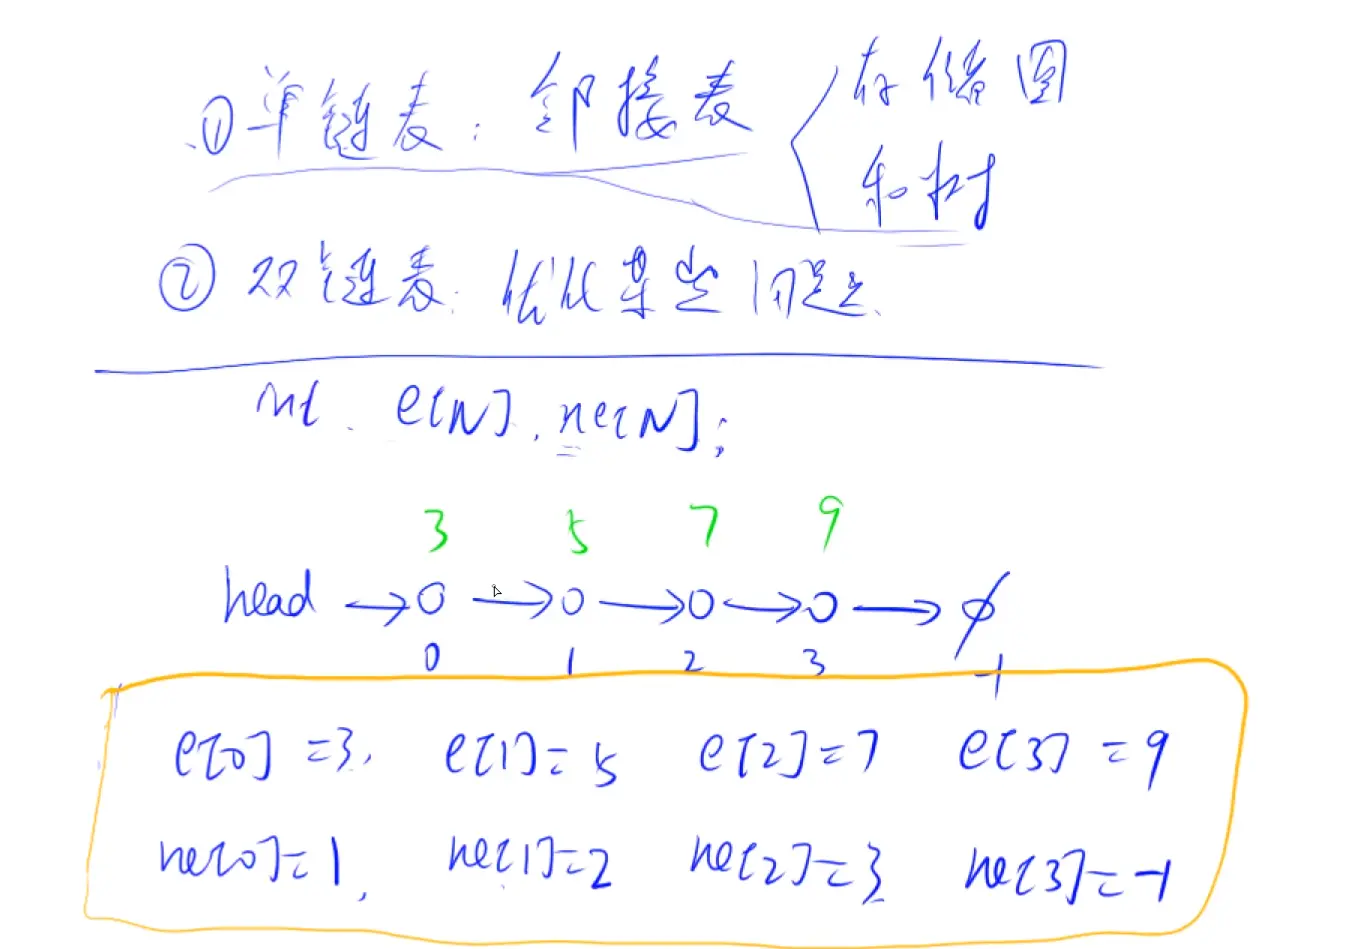 ①单链表：邻接表 存储图
和树
②双链表：优化某些问题.
int e[N], ne[N];
3 5 7 9
head → O → O → O → O → ∅
0 1 2 3 -1
e[0]=3, e[1]=5 e[2]=7 e[3]=9
ne[0]=1, ne[1]=2 ne[2]=3 ne[3]=-1